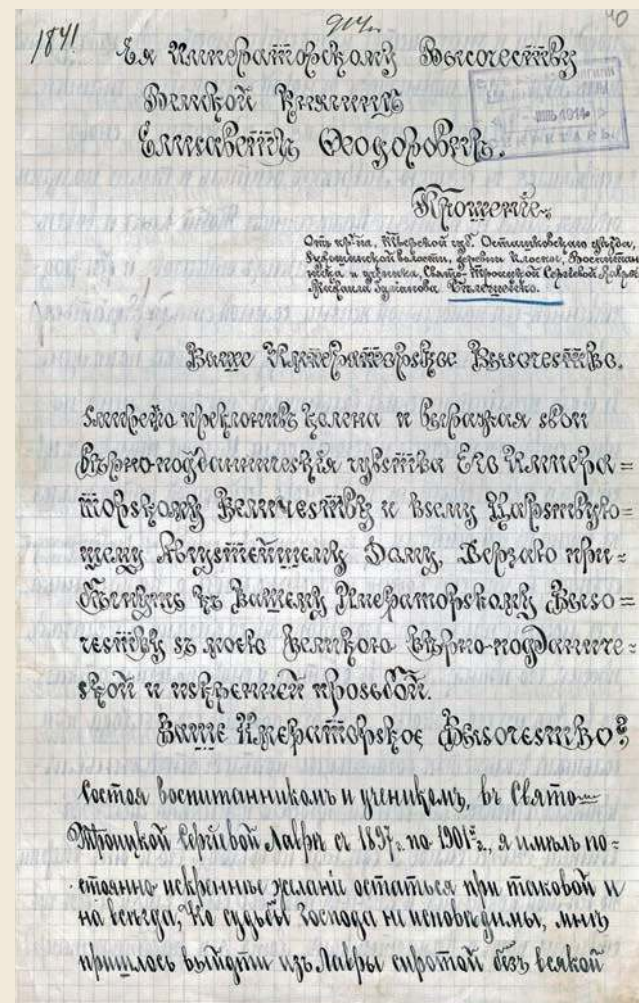 1841 914 40
Ея Императорскому Высочеству
Великой Княгинѣ
Елисаветѣ Ѳеодоровнѣ.
1914
Прошенiе
Отъ кр-на, Тверской губ. Осташковскаго уѣзда,
волости, деревни Воспитан-
ника и ученика, Свято-Троицкой Сергiевой Лавры
Михаила
Ваше Императорское Высочество.
Смирено преклонивъ колена и выражая свои
вѣрно-подданическiя чувства Его Импера=
торскому Величеству и всему Царствую=
щему Августейшему Дому, Дерзаю при=
бѣгнуть къ Вашему Императорскому Высо=
честву съ моею великою вѣрно-подданиче=
ской и искренней просьбой.
Ваше Императорское Высочество?
Состоя воспитанникомъ и ученикомъ, въ Свято=
Троицкой Сергiевой Лаврѣ съ 1897г. по 1901г., я имѣлъ по=
стоянно искреннье желанiе остаться при таковой и
на всегда, Но судьбы Господа не исповедимы, мнѣ
пришлось выйдти изъ Лавры сиротой безъ всякой